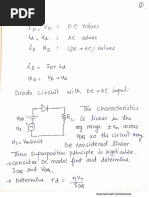 ①
ID, VD : DC values
id, vd : AC values
iD vD : (DC + AC) values
iD = IDQ + id
Diode circuit with DC + AC input:
The characteristics
is linear in the
eq range ± vm across
eq so the circuit may
be considered linear
VDD
RL
vs
vs = Vm sin wt
Thus superposition principle is applicable.
→ consider DC model first and determine
IDQ, VDQ.
→ Determine rd = ηVT
IDQ
Scanned with CamScanner